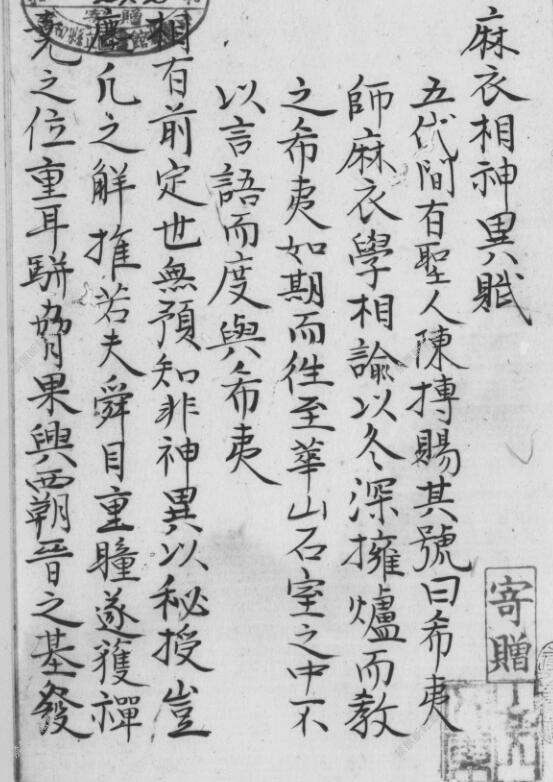 麻衣相神異賦
五代間有聖人陳摶賜其號曰希夷
師麻衣學相諭以冬深擁爐而教
之希夷如期而徃至華山石室之中不
以言語而度與希夷
相有前定世無預知非神異以秘授豈
凡之解推若夫舜目重瞳遂獲禪
堯之位重耳駢胷果興西朝晋之基發
寄贈